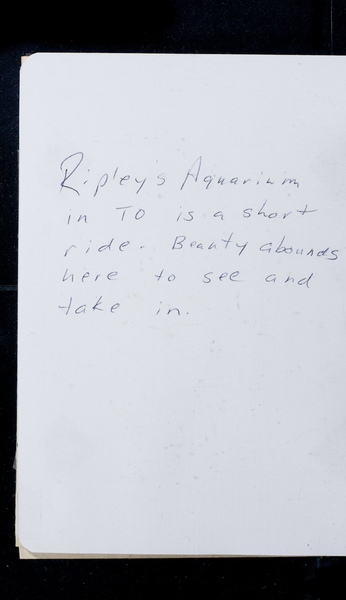 Ripley's Aquarium
in TO is a short
ride. Beauty abounds
here to see and
take in.